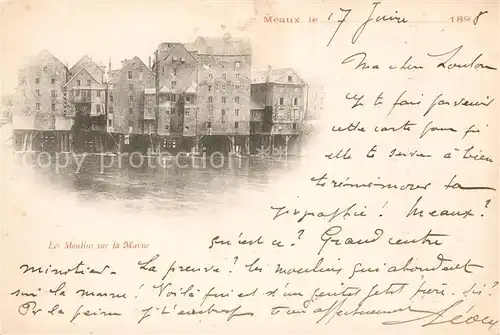 Meaux, le 17 Juin 1898
Ma chère Loulou
Je te fais parvenir
cette carte pour qu'
elle te serve à bien
te rémémorer ta
géographie! Meaux?
qu'est ce? Grand centre
Les Moulins sur la Marne
minotier. La preuve? les moulins qui abondent
sur la marne! Voilà qui est d'un
Pr la peine je t'embrasse affectueusement
© copyright photo